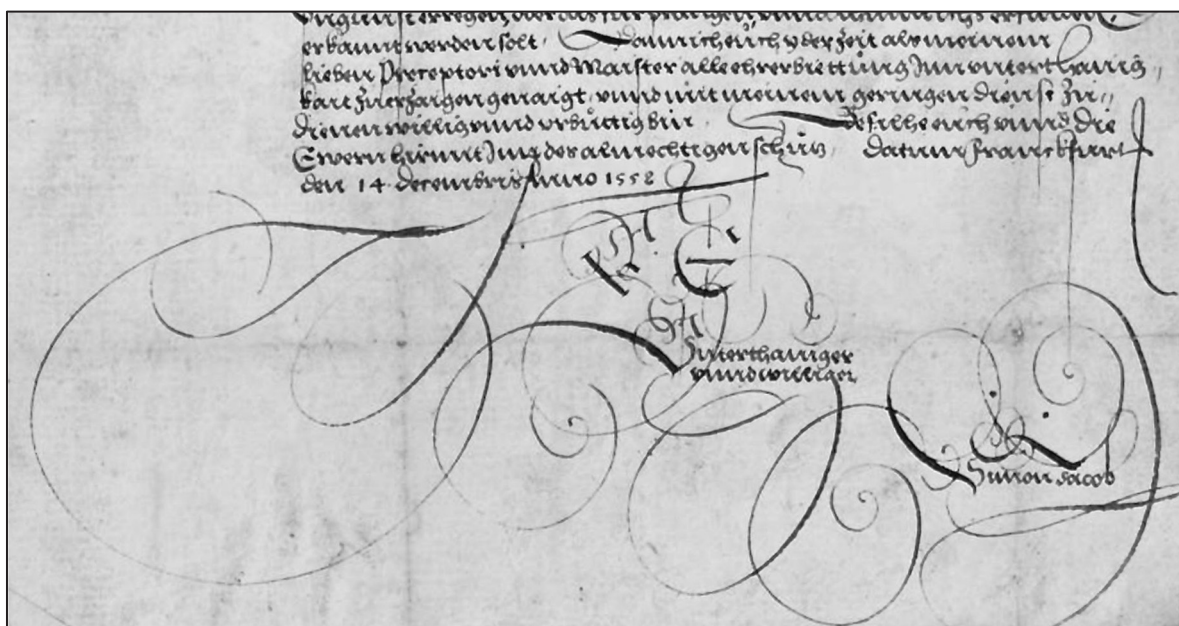 erkannt werden solt. Dann ich euch yder Zeit als meinem
lieben Preceptori vnnd Maister alle ehrerbiettung Inn vnterthanig
kait zuerzaigen genaigt, vnnd mit meinem geringen dienst zu
dienen willig vnnd vrbüttig bin. Befilhe euch vnnd die
Ewern hiemit Inn der almechtigen schutz. Datum Franckfurt
den 14 decembris Anno 1558
E
Vnterthaniger
vnnd williger
Simon Jacob